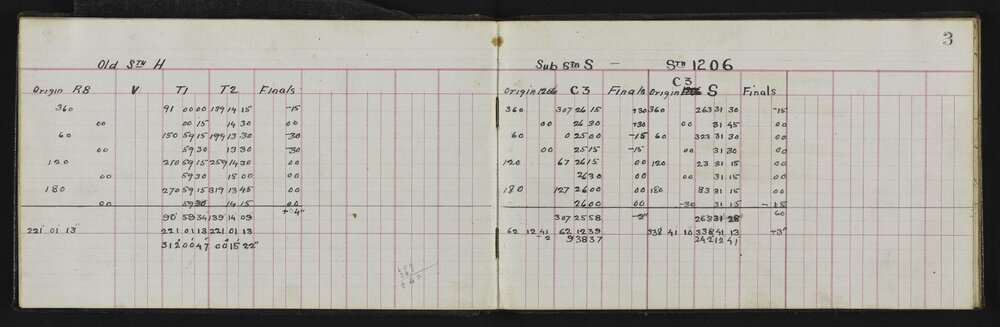 3
Old Stn H
Origin R8 V T1 T2 Finals
360 91 00 00 139 14 15 -15
00 00 15 14 30 00
60 150 59 15 199 13 30 -30
00 59 30 13 30 -30
120 210 59 15 259 14 30 00
00 59 30 15 00 00
180 270 59 15 319 13 45 00
00 59 30 14 15 00
+04"
90 59 34 139 14 09
221 01 13 221 01 13 221 01 13
312 00 47 00 15 22"
Sub Stn S - Stn 1206
C3
Origin 1206 C3 Finals Origin S Finals
360 307 26 15 +30 360 263 31 30 -15
00 26 30 +30 00 31 45 00
60 0 25 00 -15 60 323 31 30 00
00 25 15 -15 00 31 30 00
120 67 26 15 00 120 23 31 15 00
00 26 30 00 00 31 15 00
180 127 26 00 00 180 83 31 15 00
00 26 00 00 -30 31 15 -15
307 25 58 -2" 263 31 28" 60
62 12 41 62 12 39 338 41 10 338 41 13 +3"
-2 9 38 37 242 12 41